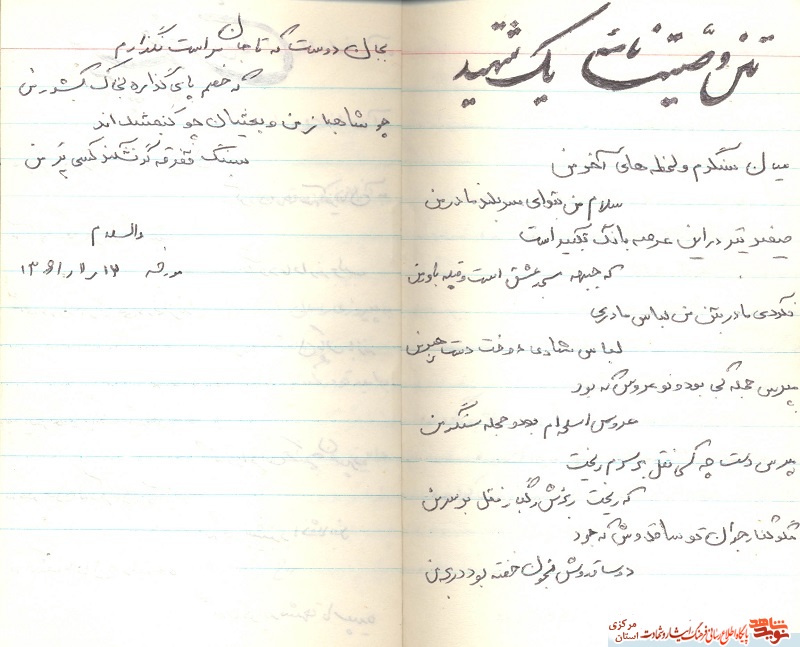 متن وصیتنامهٔ یک شهید
میان سنگرم و لحظه های آخر من
سلام من بتو ای سربلند مادر من
صفیر تیر در این عرصه بانگ تکبیر است
که جبهه مسجد عشق است و قبله باور من
نکردی مادر بتن من لباس دامادی
لباس شادی دوخت دست رهبر من
مپرس حجله کی بود و نو عروس که بود
عروس اسلحه ام بود و حجله سنگر من
مپرس دست چه کسی نقل بر سرم ریخت
که ریخت ریزش رگبار نقل بر سر من
نگو شنا جوان تو ساقدوش که بود
دو ساقدوش بخون خفته بود در بر من
بجان دوست که تا جان مراست نگذارم
که خصم پای گذارد بخاک کشور من
چو شاهباز من و بعثیان چو گنجشک اند
بسنگ تفرقه گر نشکند کسی پر من
والسلام
مورخه ۱۳۶۱/۱/۱۲
نوید شاهد
پایگاه اطلاع رسانی فرهنگ ایثار و شهادت
استان مرکزی